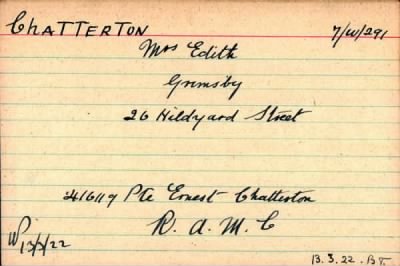 CHATTERTON 7/W/291
Mrs Edith
Grimsby
26 Hildyard Street
416119 Pte Ernest Chatterton
R. A. M. C
W 13/3/22
13.3.22. BT.